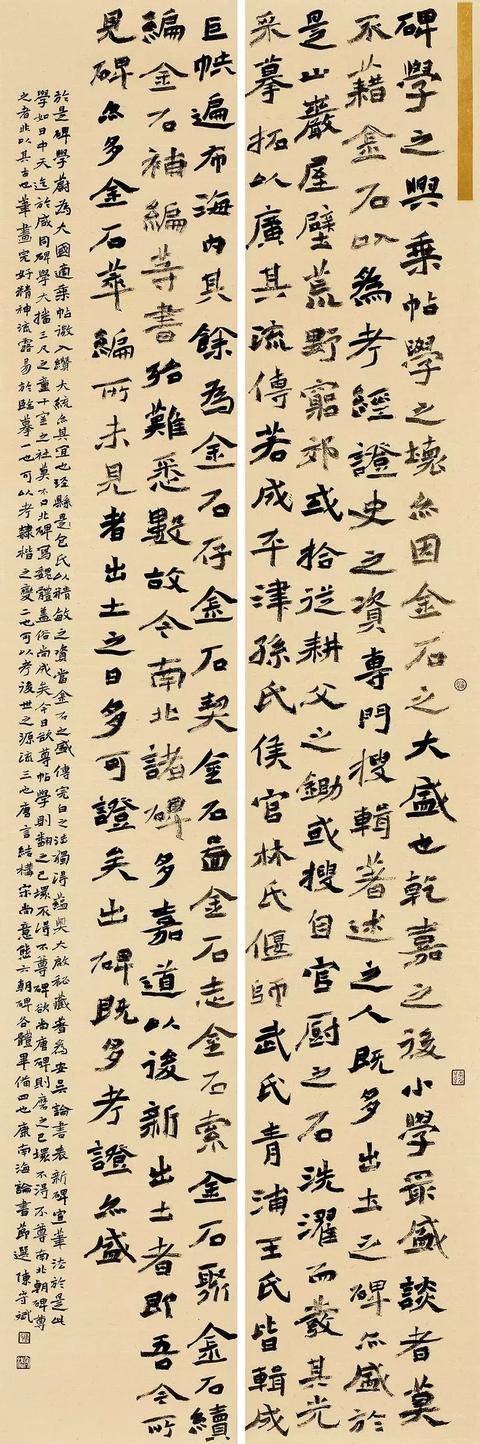 碑學之興乘帖學之壞亦因金石之大盛也乾嘉之後小學最盛談者莫
不藉金石以為考經證史之資專門搜輯著述之人既多出土之碑亦盛於
是山巖屋壁荒野窮郊或拾從耕父之鋤或搜自官厨之石洗濯而發其光
采摹拓以廣其流傳若成平津孫氏侯官林氏偃師武氏青浦王氏皆輯成
巨帙遍布海內其餘為金石存金石契金石圖金石志金石索金石聚金石續
編金石補編等書殆難悉數故今南北諸碑多嘉道以後新出土者即吾今所
見碑亦多金石萃編所未見者出土之日多可證矣出碑既多考證亦盛
於是碑學蔚為大國適乘帖微入纘大統亦其宜也涇縣是包氏以精敏之資當金石之盛傳完白之法獨得蘊奧大啟秘藏著為安吳論書表新碑宣筆法於是此
學如日中天迄於咸同碑學大播三尺之童十室之社莫不口北碑寫魏體蓋俗尚成矣今日欲尊帖學則翻之已壞不得不尊碑欲尚唐碑則磨之已壞不得不尊南北朝碑尊
之者非以其古也筆畫完好精神流露易於臨摹一也可以考隸楷之變二也可以考後世之源流三也唐言結構宋尚意態六朝碑各體畢備四也康南海論書節選陳守斌